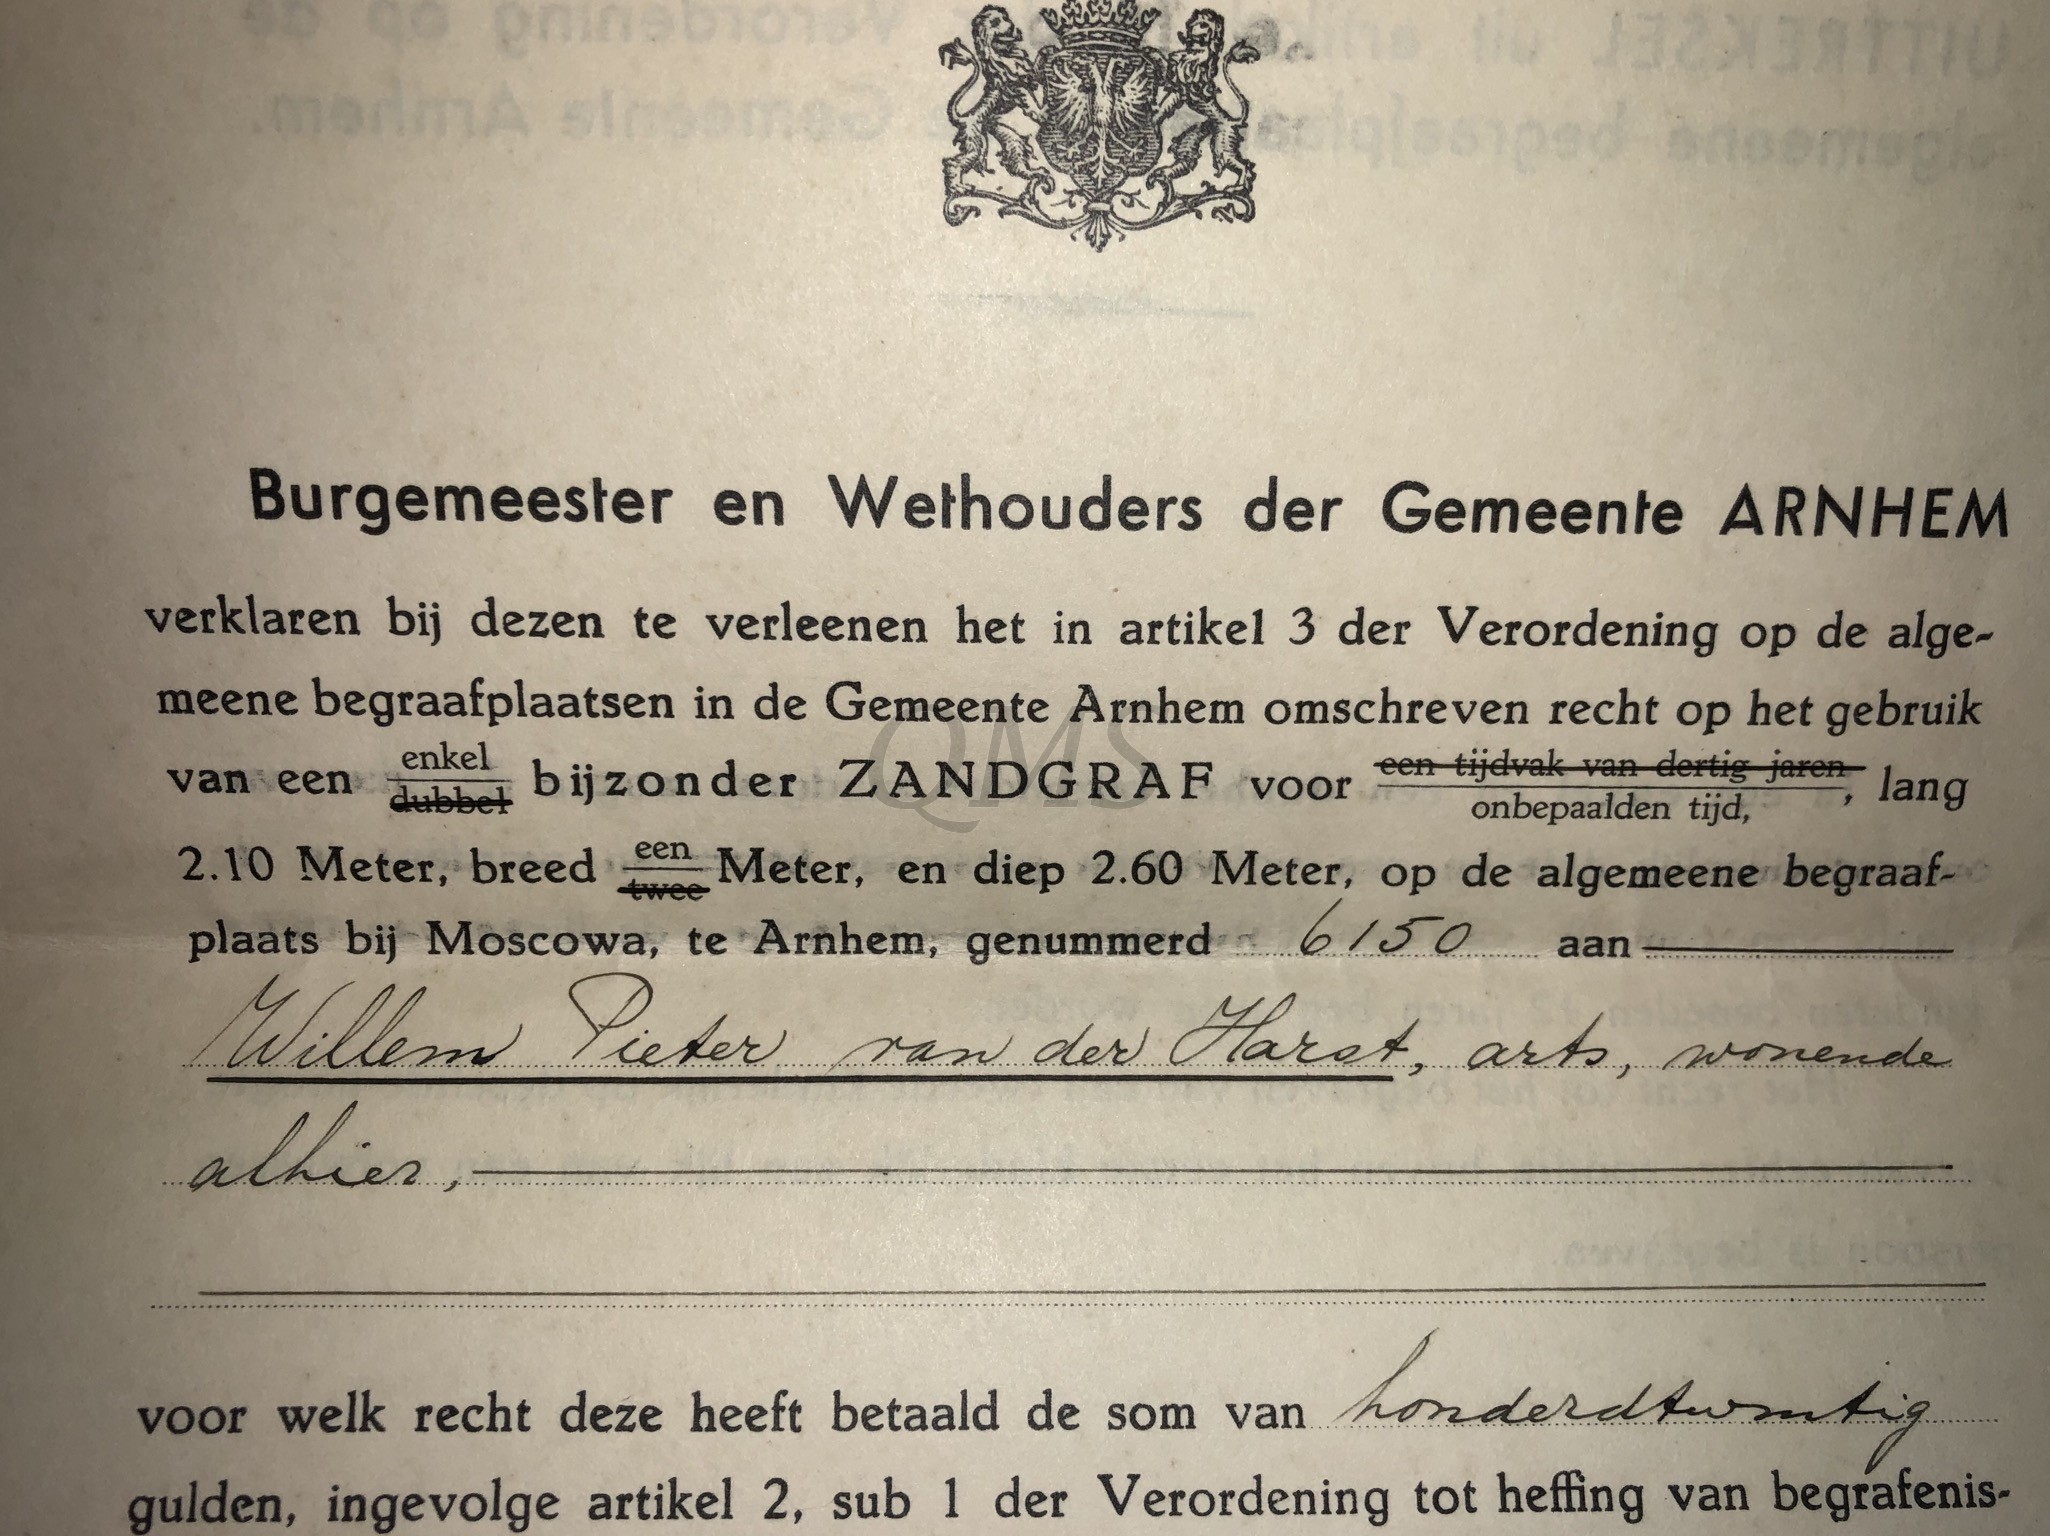 Burgemeester en Wethouders der Gemeente ARNHEM
verklaren bij dezen te verleenen het in artikel 3 der Verordening op de alge-
meene begraafplaatsen in de Gemeente Arnhem omschreven recht op het gebruik
van een enkel dubbel bijzonder ZANDGRAF voor een tijdvak van dertig jaren onbepaalden tijd, , lang
2.10 Meter, breed een twee Meter, en diep 2.60 Meter, op de algemeene begraaf-
plaats bij Moscowa, te Arnhem, genummerd 6150 aan
Willem Pieter van der Harst, arts, wonende
alhier,
voor welk recht deze heeft betaald de som van honderdtwintig
gulden, ingevolge artikel 2, sub 1 der Verordening tot heffing van begrafenis-
QMS